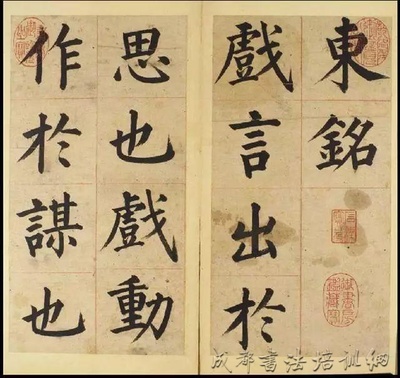 東銘
戲言出於
思也戲動
作於謀也
成都書法培训網